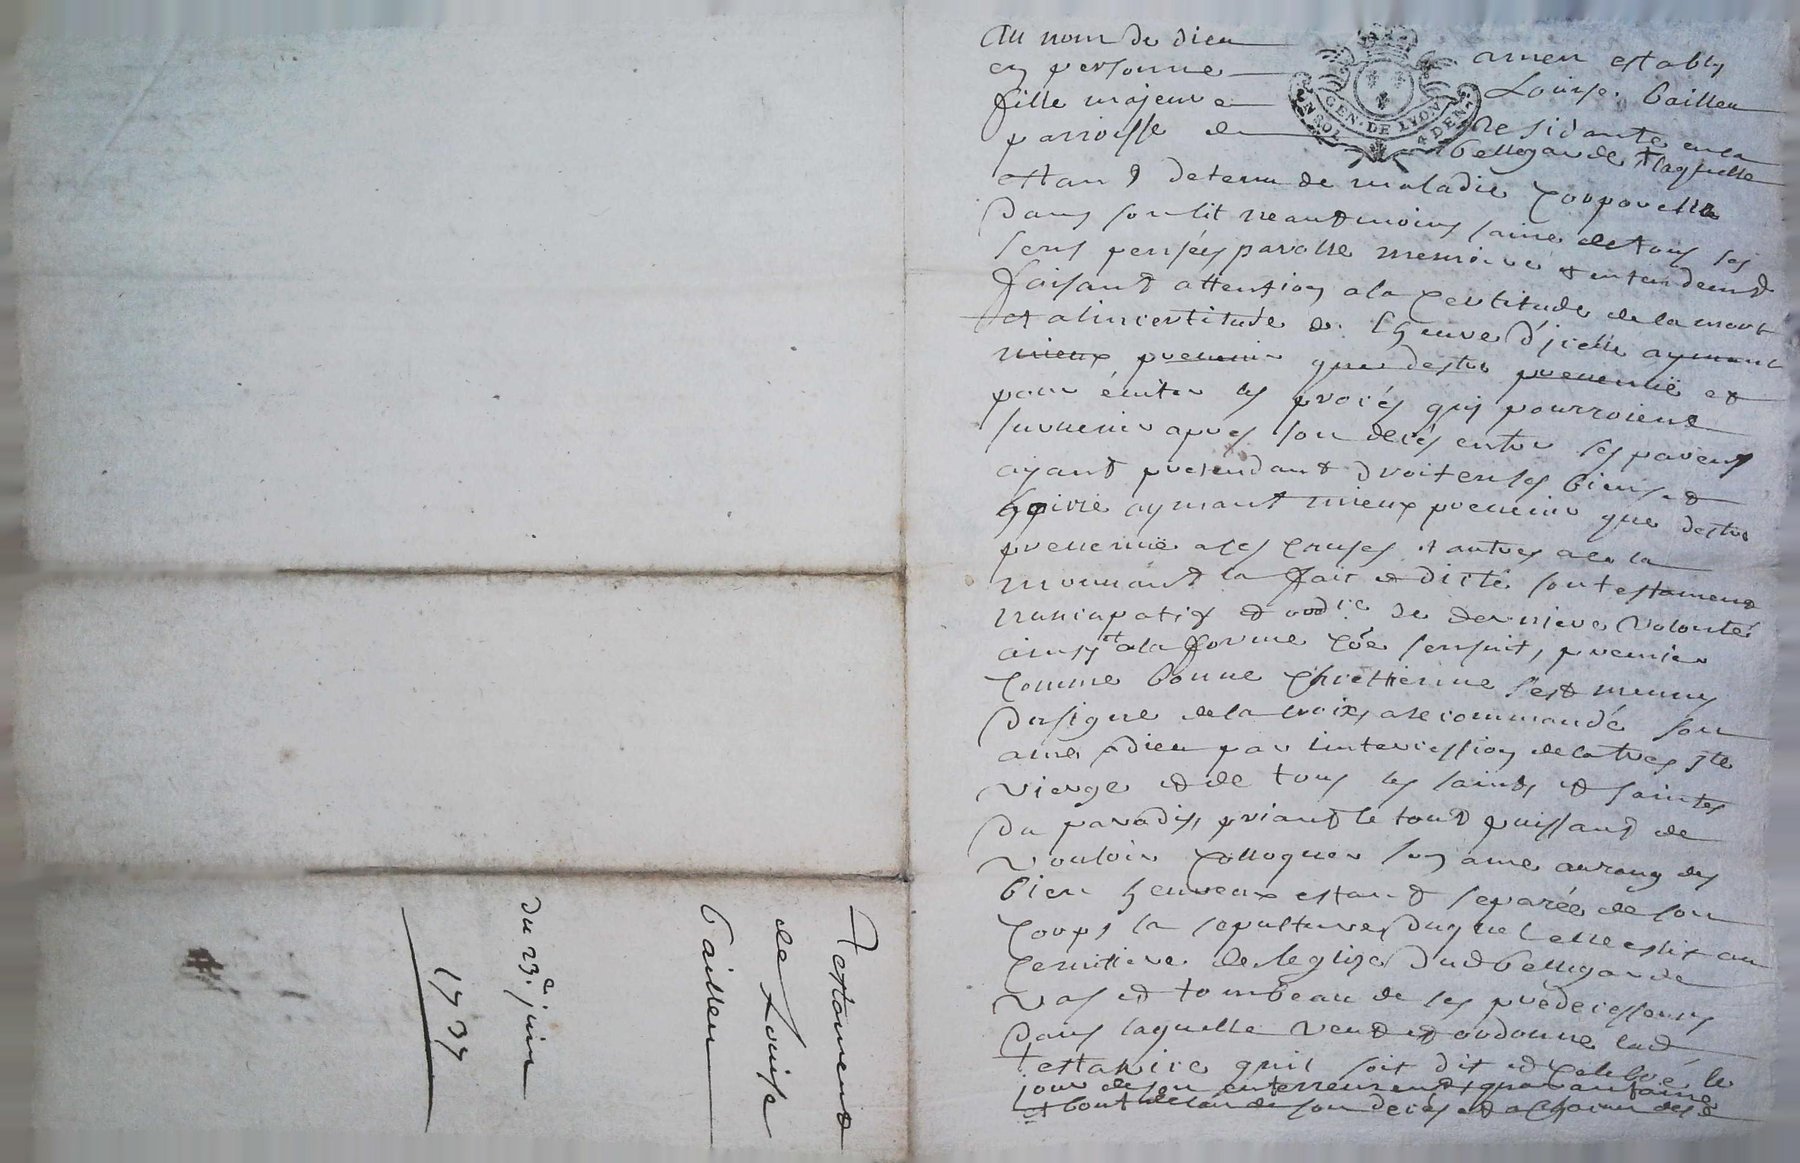 Au nom de dieu amen estably
en personne Louise Bailleu
fille majeure residante en la
parroisse de Bellegarde laquelle
GEN. DE LYON
estant detenu de maladie corporelle
dans son lit neantmoins saine de tous ses
sens pensées parolle memoire et entendemt
faisant attention a la certitude de la mort
et a lincertitude de lheure d'jcelle aymant
mieux prevenir que destre prevenuë et
pour éviter les procés quy pourroient
survenir apres son decés entre ses parens
ayant pretendant droit en ses biens et
hoirie aymant mieux prevenir que destre
prevenuë a ces causes et autres a ce la
mouvant la fait et dicté son testament
nuncupatif et ordre de derniere volonté
ainsy et a la forme coe sensuit, premier
comme bonne chrettienne sest munny
du signe de la croix, a recommandé son
ame a dieu par lintercession de la tres ste
vierge et de tous les saints et saintes
du paradis, priant le tout puissant de
vouloir colloquer son ame au rang des
bien heureux estant separée de son
corps la sepulture duquel elle eslit au
cemittiere de leglize dud Bellegarde
vas et tombeau de ses predecesseurs
dans laquelle veut et ordonne lad
testatrice quil soit dit et celebré le
jour de son enterrement, quarantaine
et bout de lan de son decés et a chacun des
Testament
de Louise
Bailleu
du 23e juin
1737